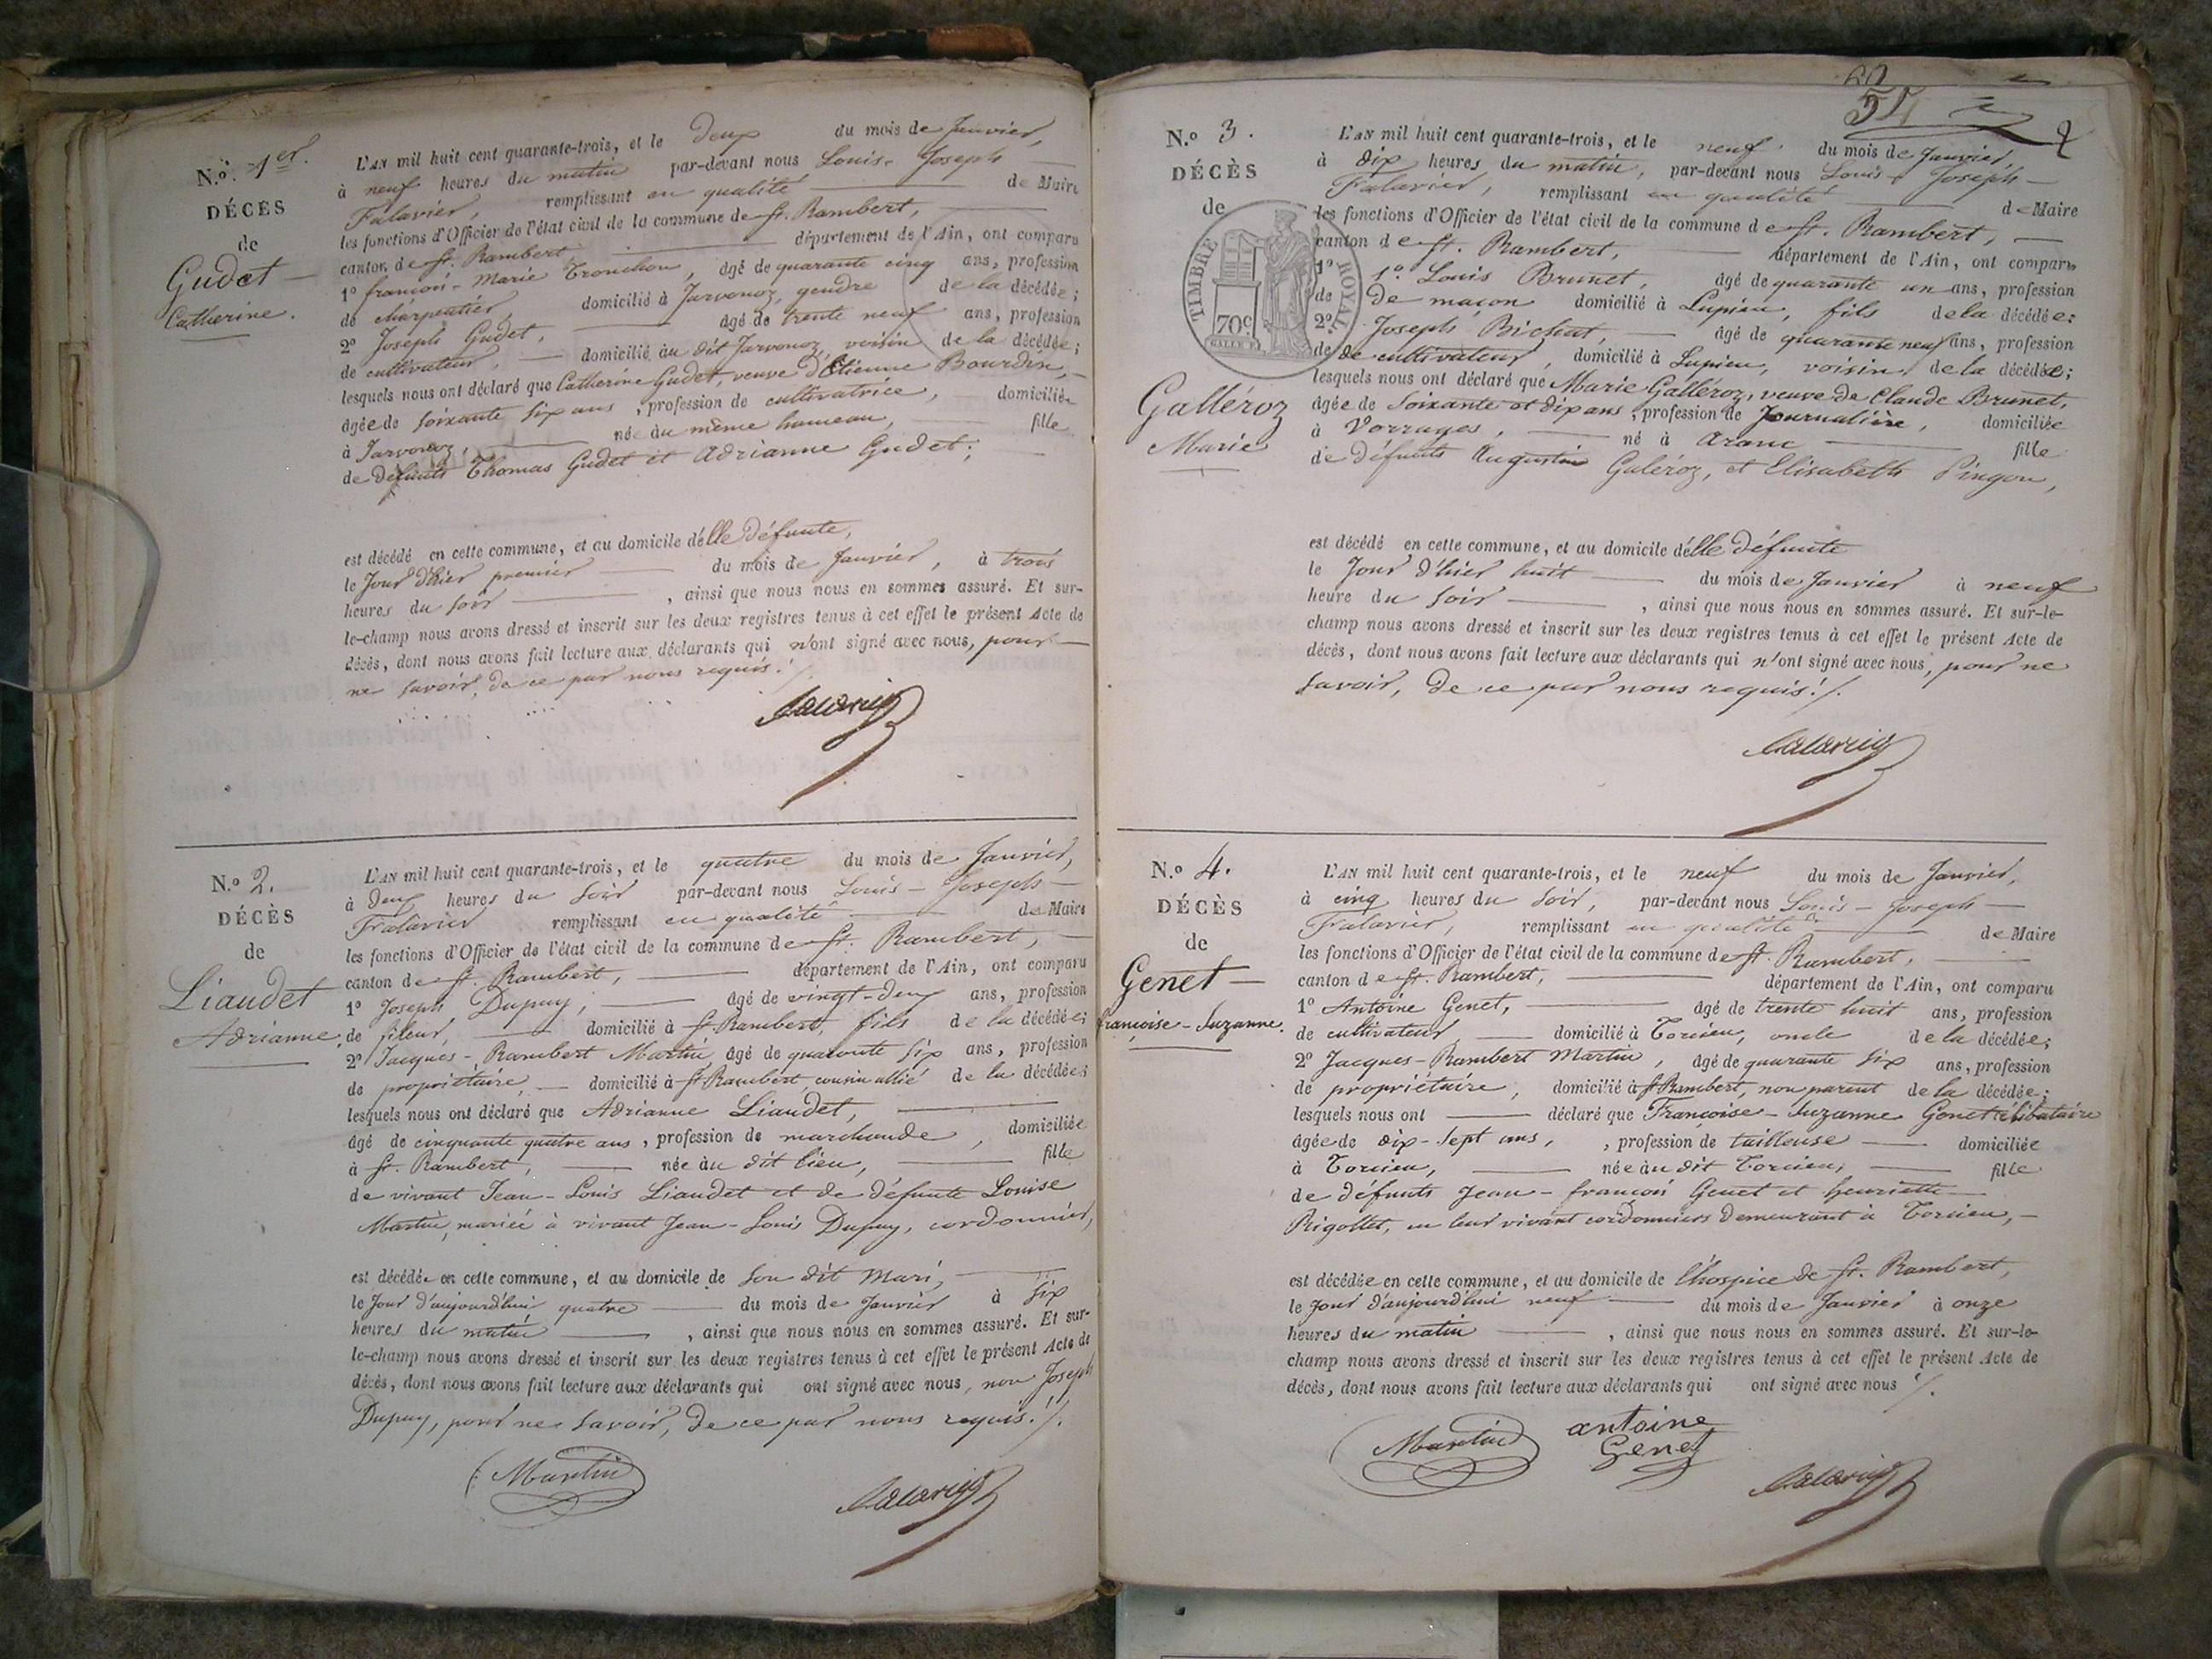 N.o 1er.
DÉCÈS
de
Gudet
Catherine.
L'AN mil huit cent quarante-trois, et le deux du mois de Janvier,
à neuf heures du matin par-devant nous Louis-Joseph
Falavier, remplissant en qualité de Maire
les fonctions d'Officier de l'état civil de la commune de St. Rambert,
canton de St. Rambert, département de l'Ain, ont comparu
1o françois-Marie Tronchon, âgé de quarante cinq ans, profession
de charpentier, domicilié à Javornoz, gendre de la décédée;
2o Joseph Gudet, âgé de trente neuf ans, profession
de cultivateur, domicilié au dit Javornoz, voisin de la décédée;
lesquels nous ont déclaré que Catherine Gudet, veuve d'Etienne Bourdin,
âgée de soixante six ans, profession de cultivatrice, domiciliée
à Javornoz, née au même hameau, fille
de défunts Thomas Gudet et Adrianne Gudet;
est décédé en cette commune, et au domicile délle défunte,
le Jour d'hier premier du mois de Janvier, à trois
heures du soir, ainsi que nous nous en sommes assuré. Et sur-
le-champ nous avons dressé et inscrit sur les deux registres tenus à cet effet le présent Acte de
décès, dont nous avons fait lecture aux déclarants qui n'ont signé avec nous, pour
ne savoir, de ce par nous requis./.
Falavier
N.o 2.
DÉCÈS
de
Liaudet
Adrianne.
L'AN mil huit cent quarante-trois, et le quatre du mois de Janvier,
à deux heures du soir par-devant nous Louis-Joseph
Falavier remplissant en qualité de Maire
les fonctions d'Officier de l'état civil de la commune de St. Rambert,
canton de St. Rambert, département de l'Ain, ont comparu
1o Joseph Dupuy, âgé de vingt-deux ans, profession
de fileur, domicilié à St Rambert, fils de la décédée;
2o Jacques-Rambert Martin, âgé de quarante six ans, profession
de propriétaire, domicilié à St Rambert, cousin allié de la décédée;
lesquels nous ont déclaré que Adrianne Liaudet,
âgé de cinquante quatre ans, profession de marchande, domiciliée
à St. Rambert, née au dit lieu, fille
de vivant Jean-Louis Liaudet et de défunte Louise
Martin, mariée à vivant Jean-Louis Dupuy, cordonnier,
est décédée en cette commune, et au domicile de son dit mari,
le Jour d'aujourd'hui quatre du mois de Janvier à six
heures du matin, ainsi que nous nous en sommes assuré. Et sur-
le-champ nous avons dressé et inscrit sur les deux registres tenus à cet effet le présent Acte de
décès, dont nous avons fait lecture aux déclarants qui ont signé avec nous, non Joseph
Dupuy, pour ne savoir, de ce par nous requis./.
Martin
Falavier
2
N.o 3.
DÉCÈS
de
TIMBRE ROYAL
70c
Galléroz
Marie
L'AN mil huit cent quarante-trois, et le neuf du mois de Janvier,
à dix heures du matin, par-devant nous Louis-Joseph
Falavier, remplissant en qualité de Maire
les fonctions d'Officier de l'état civil de la commune de St. Rambert,
canton de St. Rambert, département de l'Ain, ont comparu
1o 1o. Louis Brunet, âgé de quarante un ans, profession
de de maçon domicilié à Lupieu, fils de la décédée;
2o. Joseph Bichat, âgé de quarante neuf ans, profession
de de cultivateur, domicilié à Lupieu, voisin de la décédée;
lesquels nous ont déclaré que Marie Galléroz, veuve de Claude Brunet,
âgée de soixante et dix ans, profession de Journalière, domiciliée
à Vorrages, né à Aranc fille
de défunts Augustin Galéroz, et Elisabeth Pingon,
est décédé en cette commune, et au domicile délle défunte
le Jour d'hier huit du mois de Janvier à neuf
heure du soir, ainsi que nous nous en sommes assuré. Et sur-le-
champ nous avons dressé et inscrit sur les deux registres tenus à cet effet le présent Acte de
décès, dont nous avons fait lecture aux déclarants qui n'ont signé avec nous, pour ne
savoir, de ce par nous requis./.
Falavier
N.o 4.
DÉCÈS
de
Genet
françoise-Suzanne.
L'AN mil huit cent quarante-trois, et le neuf du mois de Janvier,
à cinq heures du soir, par-devant nous Louis-Joseph
Falavier, remplissant en qualité de Maire
les fonctions d'Officier de l'état civil de la commune de St. Rambert,
canton de St. Rambert, département de l'Ain, ont comparu
1o Antoine Genet, âgé de trente huit ans, profession
de cultivateur domicilié à Torcieu, oncle de la décédée;
2o Jacques-Rambert Martin, âgé de quarante six ans, profession
de propriétaire, domicilié à St Rambert, non parent de la décédée;
lesquels nous ont déclaré que Françoise-Suzanne Genet célibataire
âgée de dix-sept ans, , profession de tailleuse domiciliée
à Torcieu, née au dit Torcieu, fille
de défunts Jean-françois Genet et henriette
Rigollet, en leur vivant cordonniers demeurant à Torcieu,
est décédée en cette commune, et au domicile de l'hospice de St. Rambert,
le Jour d'aujourd'hui neuf du mois de Janvier à onze
heures du matin, ainsi que nous nous en sommes assuré. Et sur-le-
champ nous avons dressé et inscrit sur les deux registres tenus à cet effet le présent Acte de
décès, dont nous avons fait lecture aux déclarants qui ont signé avec nous ./.
Martin
antoine
Genet
Falavier